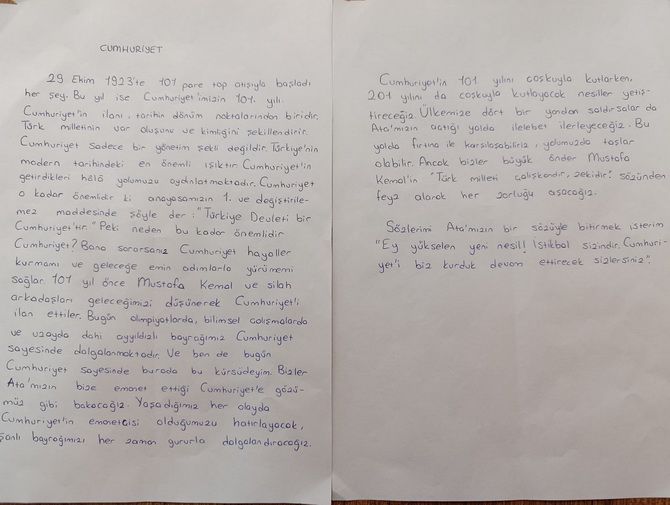 CUMHURİYET
29 Ekim 1923'te 101 pare top atışıyla başladı
her şey. Bu yıl ise Cumhuriyet'imizin 101. yılı.
Cumhuriyet'in ilanı, tarihin dönüm noktalarından biridir.
Türk milletinin var oluşunu ve kimliğini şekillendirir.
Cumhuriyet sadece bir yönetim şekli değildir. Türkiye'nin
modern tarihindeki en önemli ışıktır. Cumhuriyet'in
getirdikleri hâlâ yolumuzu aydınlatmaktadır. Cumhuriyet
o kadar önemlidir ki anayasamızın 1. ve değiştirile-
mez maddesinde şöyle der: "Türkiye Devleti bir
Cumhuriyet'tir." Peki neden bu kadar önemlidir
Cumhuriyet? Bana sorarsanız Cumhuriyet hayaller
kurmamı ve geleceğe emin adımlarla yürümemi
sağlar. 101 yıl önce Mustafa Kemal ve silah
arkadaşları geleceğimizi düşünerek Cumhuriyet'i
ilan ettiler. Bugün olimpiyatlarda, bilimsel çalışmalarda
ve uzayda dahi ayyıldızlı bayrağımız Cumhuriyet
sayesinde dalgalanmaktadır. Ve ben de bugün
Cumhuriyet sayesinde burada bu kürsüdeyim. Bizler
Ata'mızın bize emanet ettiği Cumhuriyet'e gözü-
müz gibi bakacağız. Yaşadığımız her olayda
Cumhuriyet'in emanetçisi olduğumuzu hatırlayacak,
şanlı bayrağımızı her zaman gururla dalgalandıracağız.
Cumhuriyet'in 101 yılını coşkuyla kutlarken,
201 yılını da coşkuyla kutlayacak nesiller yetiş-
tireceğiz. Ülkemize dört bir yandan saldırsalar da
Ata'mızın açtığı yolda ilelebet ilerleyeceğiz. Bu
yolda fırtına ile karşılaşabiliriz, yolumuzda taşlar
olabilir. Ancak bizler büyük önder Mustafa
Kemal'in "Türk milleti çalışkandır, zekidir." sözünden
feyz alarak her zorluğu aşacağız.
Sözlerimi Ata'mızın bir sözüyle bitirmek isterim
"Ey yükselen yeni nesil! İstikbal sizindir. Cumhuri-
yet'i biz kurduk devam ettirecek sizlersiniz".